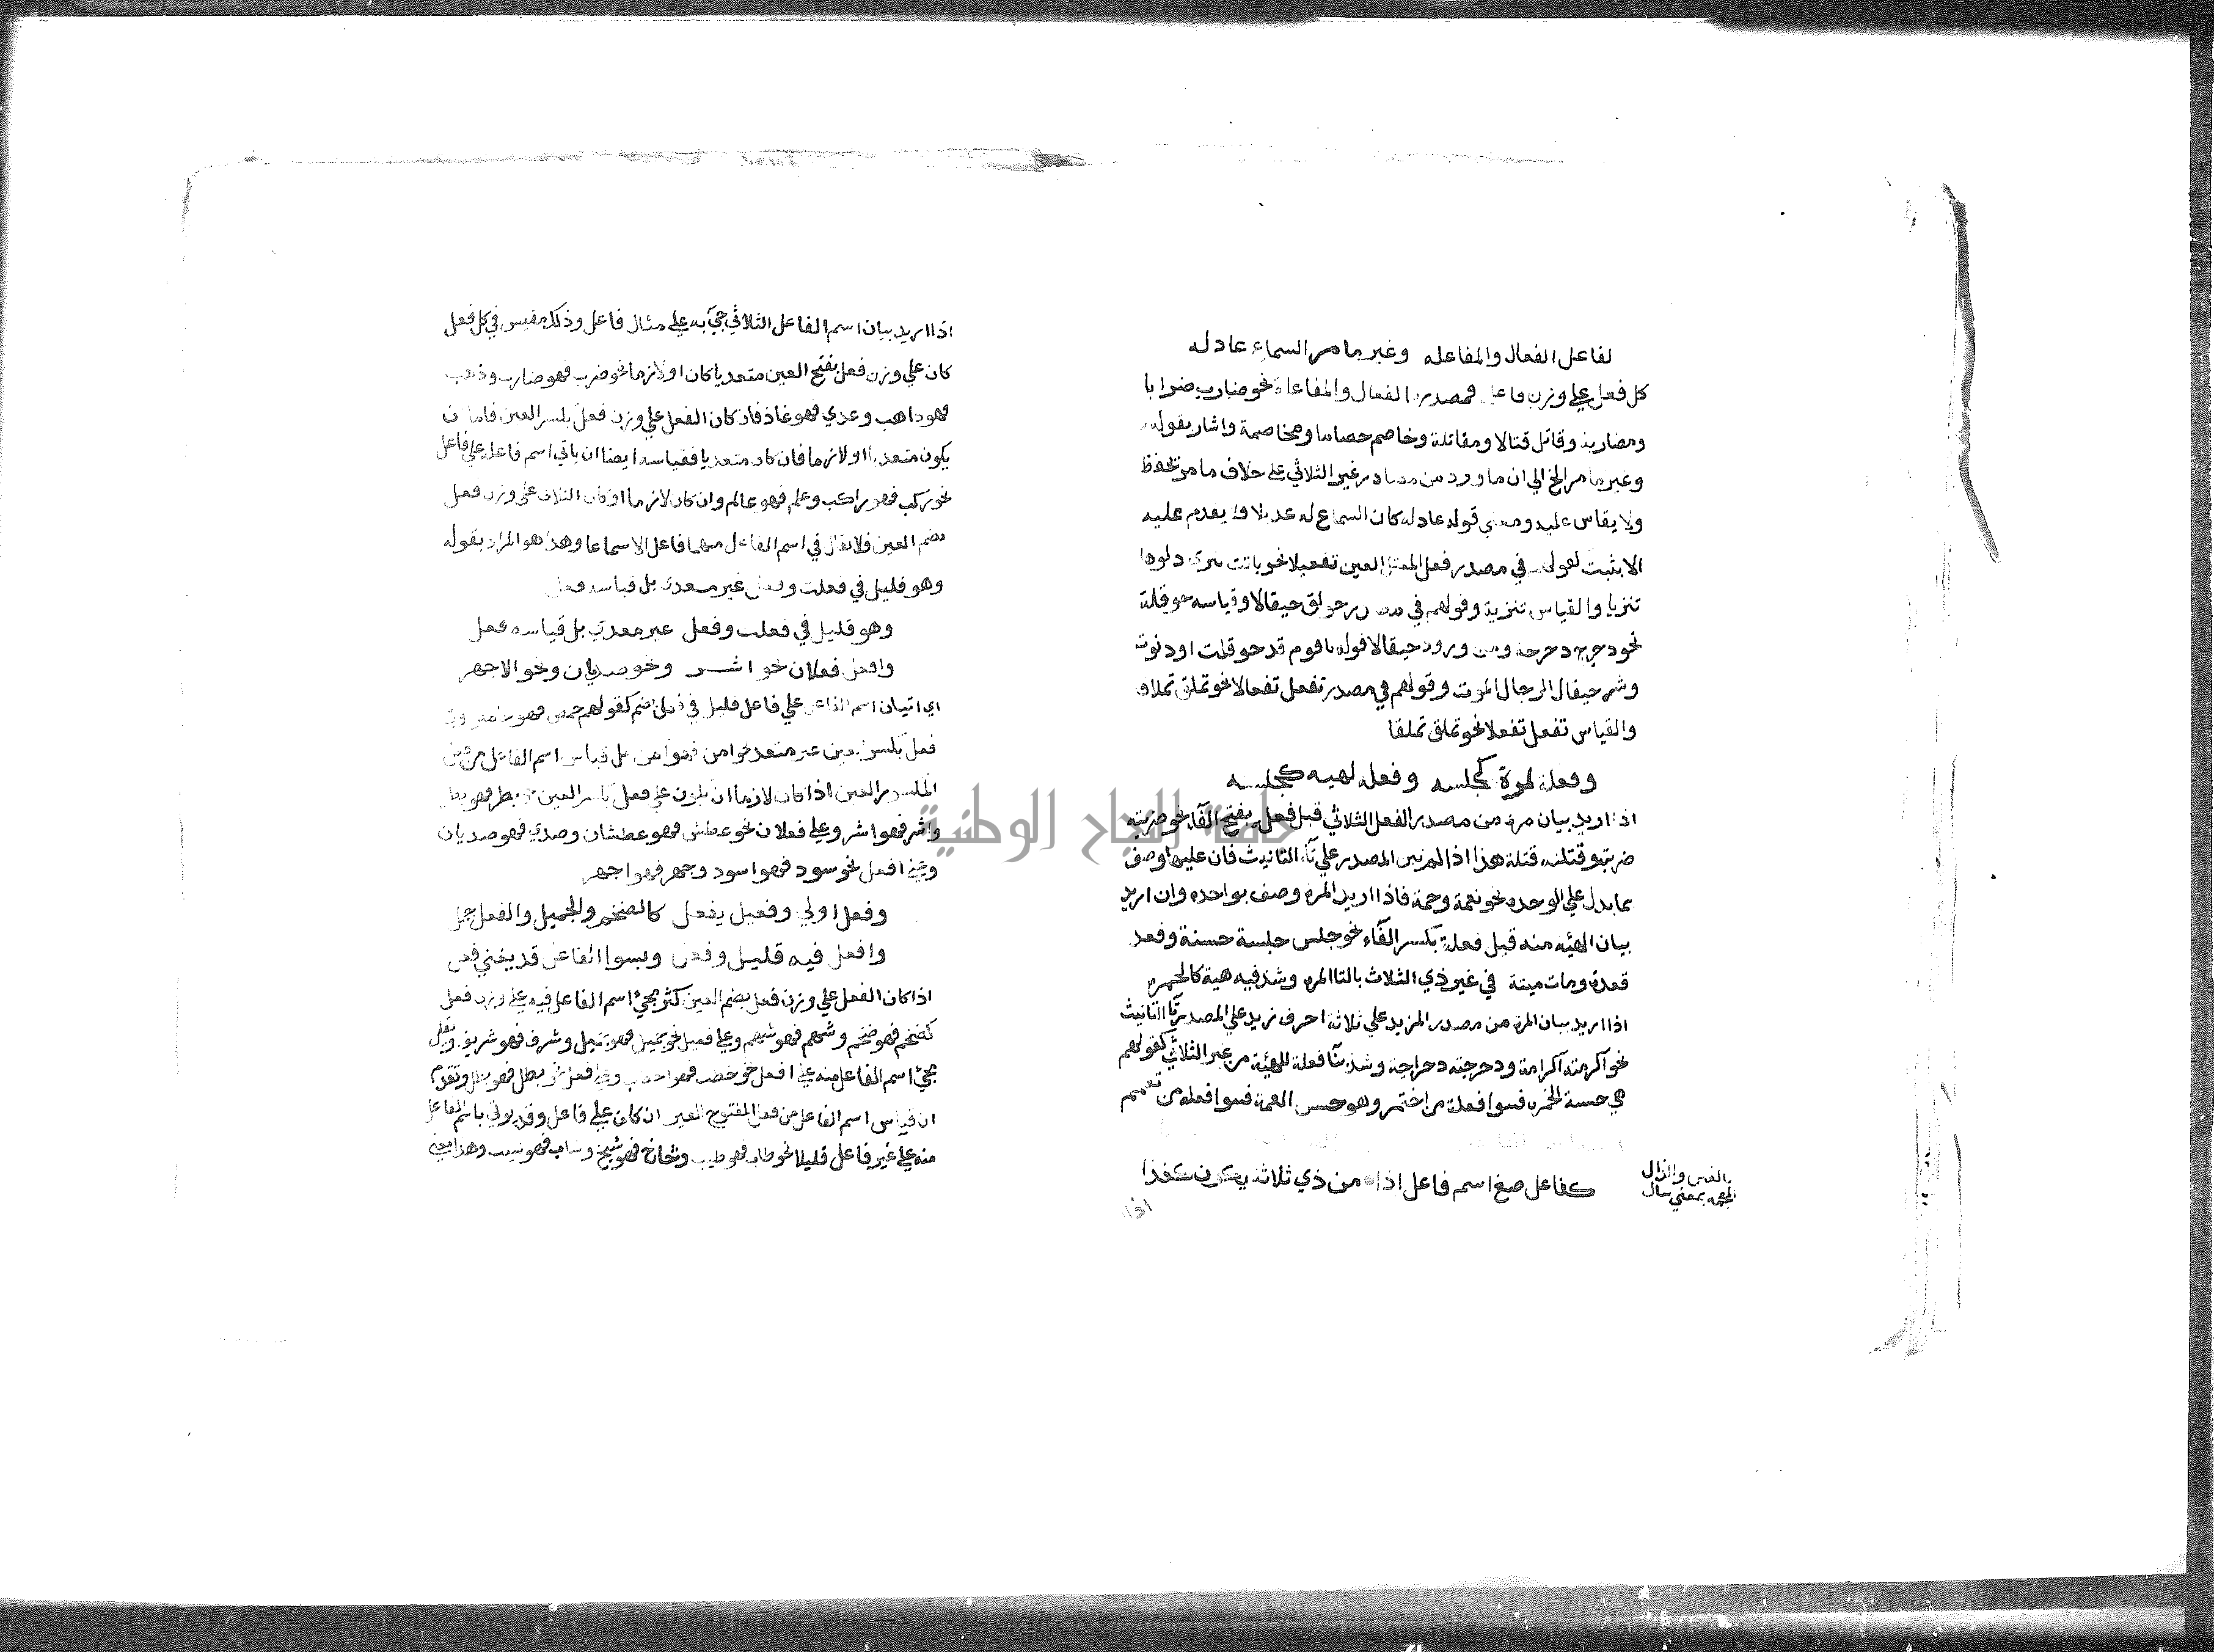 لفاعل الفعال والمفاعله وغير ما مر السماع عادله
كل فعل علي وزن فاعل فمصدره الفعال والمفاعلة نحو ضارب ضرابا
ومضاربة وقاتل قتالا ومقاتلة وخاصم خصاما ومخاصمة واشار بقوله
وغير ما مر الخ الي ان ما ورد من مصادر غير الثلاثي علي خلاف ما مر يحفظ
ولا يقاس عليه ومعني قوله عادله كان السماع له عديلا فلا يقدم عليه
الا بثبت كقولهم في مصدر فعل المعتل العين تفعيلا نحو باتت تنزي دلوها
تنزيا والقياس تنزية وقولهم في مصدر حوقل حيقالا وقياسه حوقلة
نحو دحرج دحرجة ومن ورود حيقالا قوله يا قوم قد حوقلت او دنوت
وشر حيقال الرجال الموت وقولهم في مصدر تفعل تفعالا نحو تملق تملاقا
والقياس تفعل تفعلا نحو تملق تملقا
وفعلة لمرة كجلسه وفعله لهيه كجلسه
اذا اريد بيان مرة من مصدر الفعل الثلاثي قيل فعلة بفتح الفاء نحو ضربته
ضربة وقتلته قتلة هذا اذا لم يبن المصدر علي تاء التانيث فان عليها وصف
بما يدل علي الوحده نحو نعمة ورحمة فاذا اريد المرة وصف بواحده وان اريد
بيان الهيئه منه قيل فعلة بكسر الفاء نحو جلس جلسة حسنة وقعد
قعدة ومات ميتة في غير ذي الثلاث بالتا المره وشذ فيه هية كالخمره
اذا اريد بيان المرة من مصدر المزيد علي ثلاثة احرف نزيد علي المصدر تا التانيث
نحو اكرمته اكرامة ودحرجته دحراجة وشذ بنا فعلة للهيئة من غير الثلاثي كقولهم
هي حسنة الخمره فبنوا فعلة من اختمر وهو حسن العمة فبنوا فعله من تعمم
كفاعل صغ اسم فاعل اذا من ذي ثلاثة يكون كغذا
بالغين والذال
المعجمه بمعني سال
اذا
اذا اريد بيان اسم الفاعل الثلاثي جيء به علي مثال فاعل وذلك مقيس في كل فعل
كان علي وزن فعل بفتح العين متعديا كان او لازما نحو ضرب فهو ضارب وذهب
فهو ذاهب وغذي فهو غاذ فان كان الفعل علي وزن فعل بكسر العين فاما ان
يكون متعديا او لازما فان كان متعديا فقياسه ايضا ان ياتي اسم فاعله علي فاعل
نحو ركب فهو راكب وعلم فهو عالم وان كان لازما او كان الثلاث علي وزن فعل
بضم العين فلا يقال في اسم الفاعل منهما فاعل الا سماعا وهذا هو المراد بقوله
وهو قليل في فعلت وفعل غير معدي بل قياسه فعل
وهو قليل في فعلت وفعل غير معدي بل قياسه فعل
وافعل فعلان نحو اشر ونحو صديان ونحو الاجهر
اي اتيان اسم الفاعل علي فاعل قليل في فعل بالضم كقولهم حمض فهو حامض وفي
فعل بكسر العين غير متعد نحو امن فهو امن بل قياس اسم الفاعل من فعل
المكسور العين اذا كان لازما ان يكون علي فعل بكسر العين نحو بطر فهو بطر
واشر فهو اشر وعلي فعلان نحو عطش فهو عطشان وصدي فهو صديان
وعلي افعل نحو سود فهو اسود وجهر فهو اجهر
وفعل اولي وفعيل بفعل كالضخم والجميل والفعل جمل
وافعل فيه قليل وفعل وبسوا الفاعل قد يغني فعل
اذا كان الفعل علي وزن فعل بضم العين كثر مجيء اسم الفاعل فيه علي وزن فعل
كضخم فهو ضخم وشهم فهو شهم وعلي فعيل نحو جميل فهو جميل وشرف فهو شريف ويقل
مجيء اسم الفاعل منه علي افعل نحو خطب فهو اخطب وعلي فعل نحو بطل فهو بطل وتقدم
ان قياس اسم الفاعل من فعل المفتوح العين ان كان علي فاعل وقد يوتي باسم الفاعل
منه علي غير فاعل قليلا نحو طاب فهو طيب وشاخ فهو شيخ وشاب فهو شيب وهذا معني
جامعة النجاح الوطنية